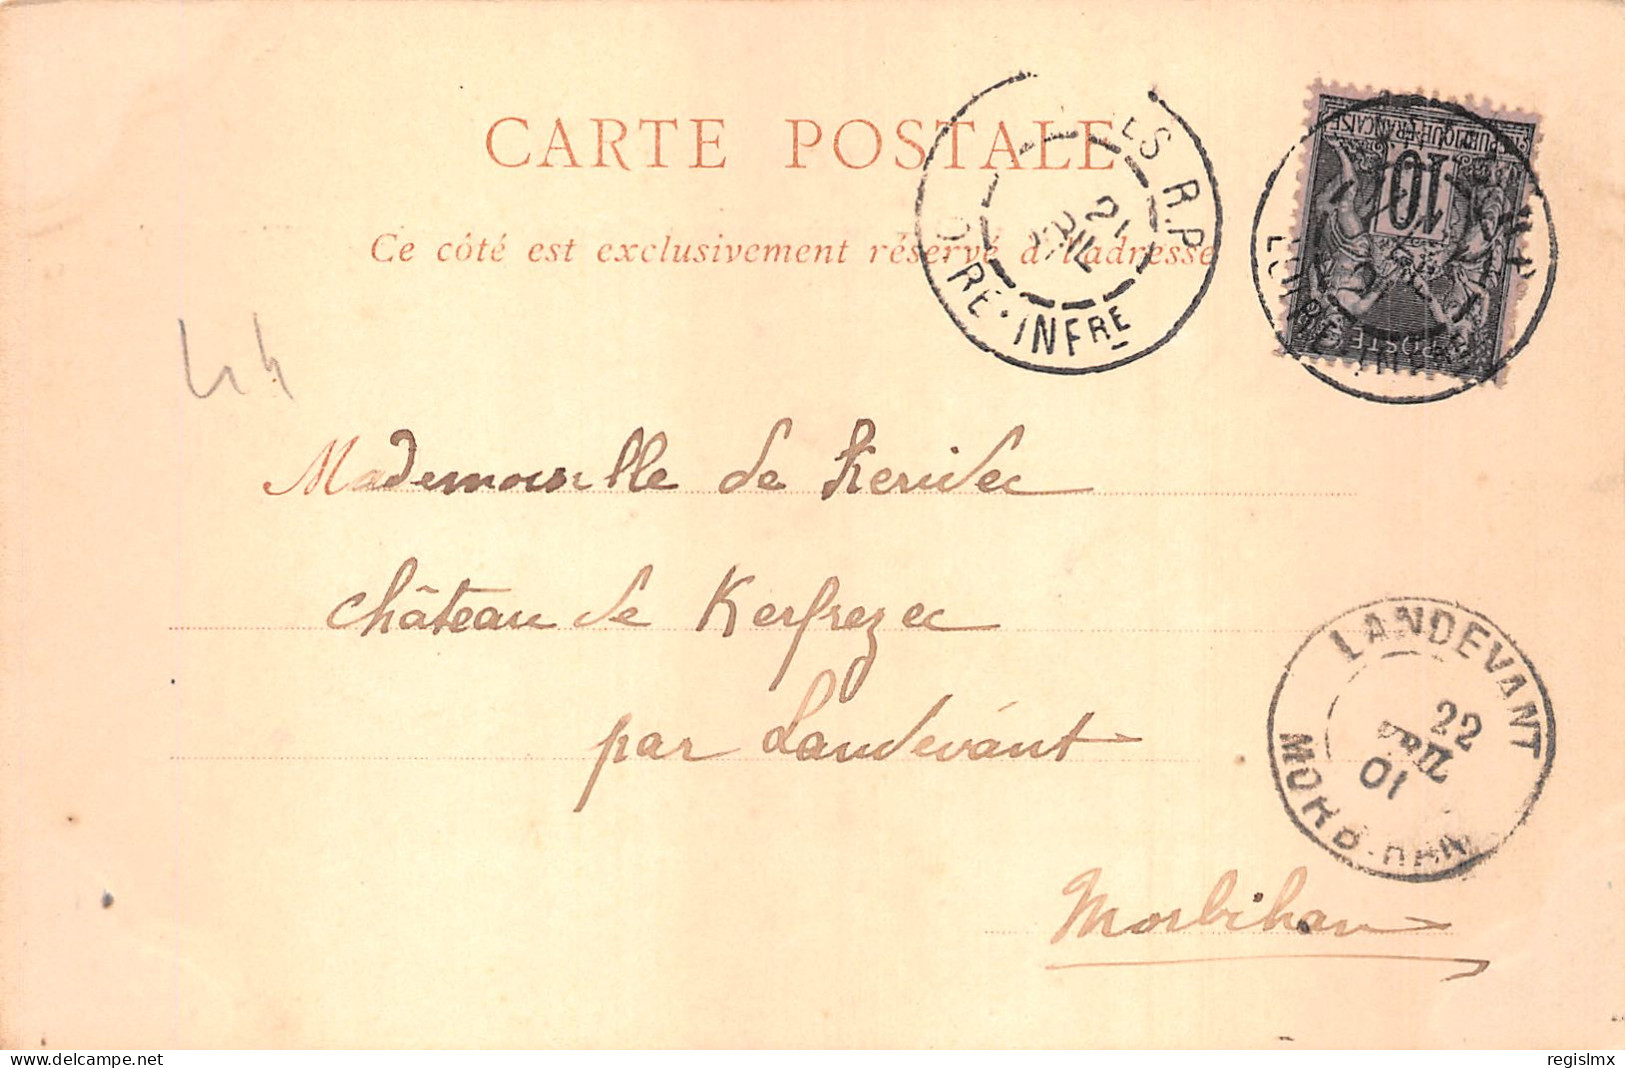 CARTE POSTALE
Ce côté est exclusivement réservé à l'adresse
LS R.P.
21
RE-INFRE
RÉPUBLIQUE FRANÇAISE
10
POSTE
LOIRE-INFRE
44
Mademoiselle de Keridec
château de Kerfrezec
par Landevant
Morbihan
LANDEVANT
22
AVRIL
01
MORBIHAN
delcampe.net
regislmx